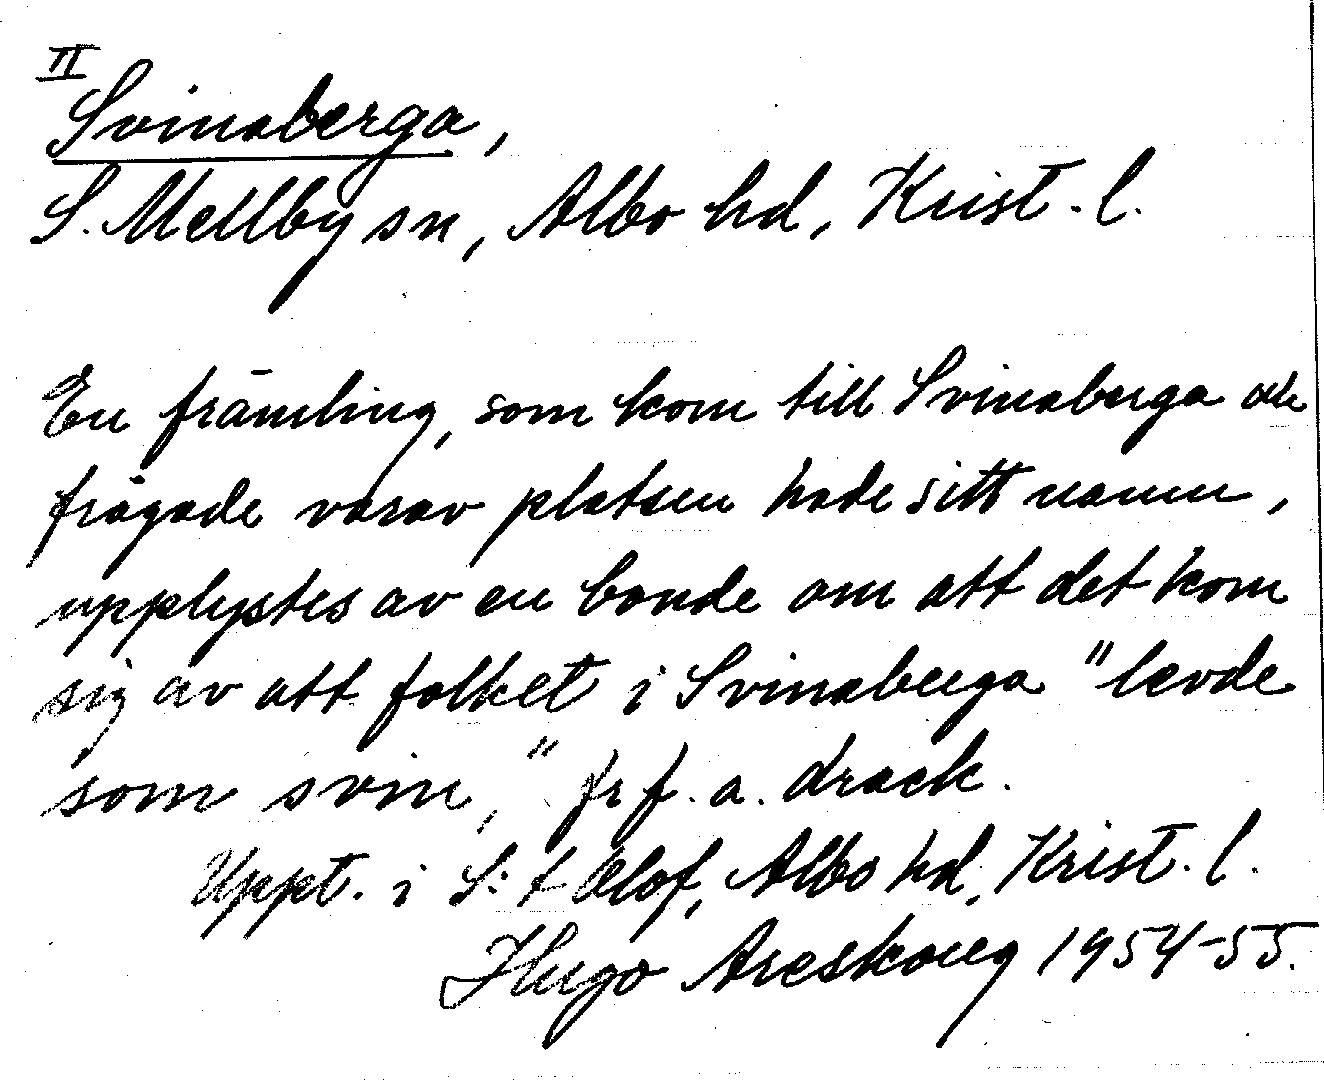 II
Svinaberga,
S. Mellby sn, Albo hd, Krist. l.
En främling, som kom till Svinaberga och
frågade varav platsen hade sitt namn,
upplystes av en bonde om att det kom
sig av att folket i Svinaberga "levde
som svin," fr f. a. drack.
Uppt. i S:t Olof, Albo hd, Krist. l.
Hugo Areskoug 1954-55.